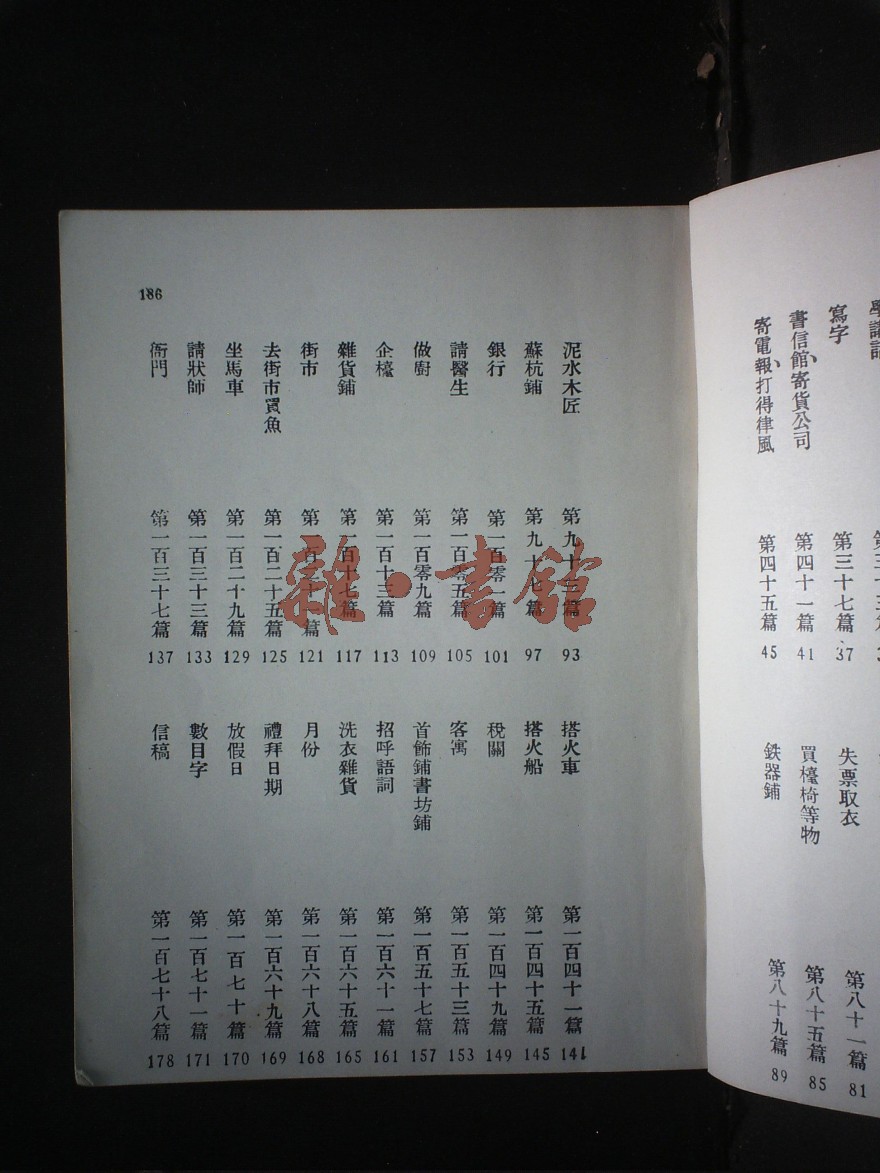 寫字 第三十七篇 37
書信館、寄貨公司 第四十一篇 41
寄電報、打得律風 第四十五篇 45
第八十一篇 81
失票取衣
買檯椅等物 第八十五篇 85
鉄器鋪 第八十九篇 89
186
泥水木匠 第九十三篇 93
蘇杭鋪 第九十七篇 97
銀行 第一百零一篇 101
請醫生 第一百零五篇 105
做廚 第一百零九篇 109
企檯 第一百十三篇 113
雜貨鋪 第一百十七篇 117
街市 第一百二十一篇 121
去街市買魚 第一百二十五篇 125
坐馬車 第一百二十九篇 129
請狀師 第一百三十三篇 133
衙門 第一百三十七篇 137
搭火車 第一百四十一篇 141
搭火船 第一百四十五篇 145
稅關 第一百四十九篇 149
客寓 第一百五十三篇 153
首飾鋪書坊鋪 第一百五十七篇 157
招呼語詞 第一百六十一篇 161
洗衣雜貨 第一百六十五篇 165
月份 第一百六十八篇 168
禮拜日期 第一百六十九篇 169
放假日 第一百七十篇 170
數目字 第一百七十一篇 171
信稿 第一百七十八篇 178
雜·書館